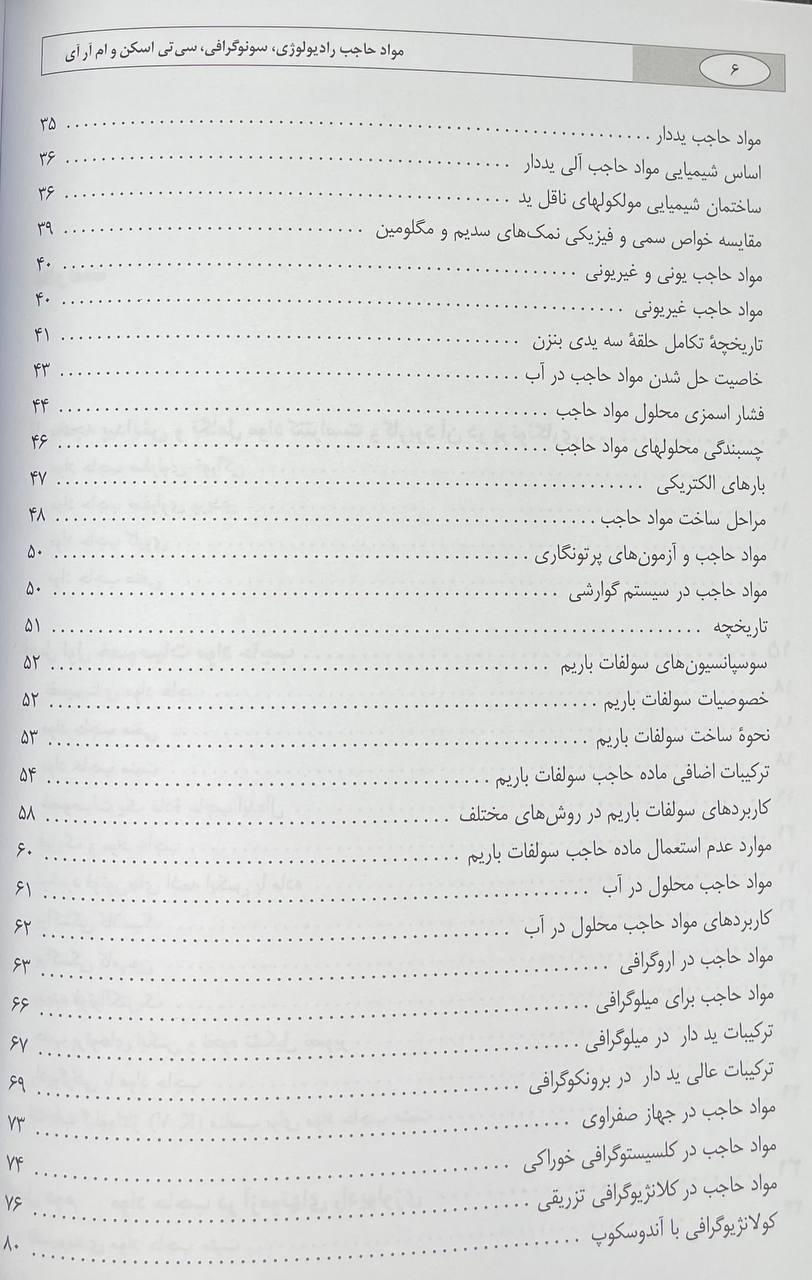 ۶
مواد حاجب رادیولوژی، سونوگرافی، سی‌تی اسکن و ام آر آی
مواد حاجب یددار ۳۵
اساس شیمیایی مواد حاجب آلی یددار ۳۶
ساختمان شیمیایی مولکولهای ناقل ید ۳۶
مقایسه خواص سمی و فیزیکی نمک‌های سدیم و مگلومین ۳۹
مواد حاجب یونی و غیریونی ۴۰
مواد حاجب غیریونی ۴۰
تاریخچهٔ تکامل حلقهٔ سه یدی بنزن ۴۱
خاصیت حل شدن مواد حاجب در آب ۴۳
فشار اسمزی محلول مواد حاجب ۴۴
چسبندگی محلولهای مواد حاجب ۴۶
بارهای الکتریکی ۴۷
مراحل ساخت مواد حاجب ۴۸
مواد حاجب و آزمون‌های پرتونگاری ۵۰
مواد حاجب در سیستم گوارشی ۵۰
تاریخچه ۵۱
سوسپانسیون‌های سولفات باریم ۵۲
خصوصیات سولفات باریم ۵۲
نحوهٔ ساخت سولفات باریم ۵۳
ترکیبات اضافی ماده حاجب سولفات باریم ۵۴
کاربردهای سولفات باریم در روش‌های مختلف ۵۸
موارد عدم استعمال ماده حاجب سولفات باریم ۶۰
مواد حاجب محلول در آب ۶۱
کاربردهای مواد حاجب محلول در آب ۶۲
مواد حاجب در اروگرافی ۶۳
مواد حاجب برای میلوگرافی ۶۶
ترکیبات ید دار در میلوگرافی ۶۷
ترکیبات عالی ید دار در برونکوگرافی ۶۹
مواد حاجب در جهاز صفراوی ۷۳
مواد حاجب در کلسیستوگرافی خوراکی ۷۴
مواد حاجب در کلانژیوگرافی تزریقی ۷۶
کولانژیوگرافی با آندوسکوپ ۸۰